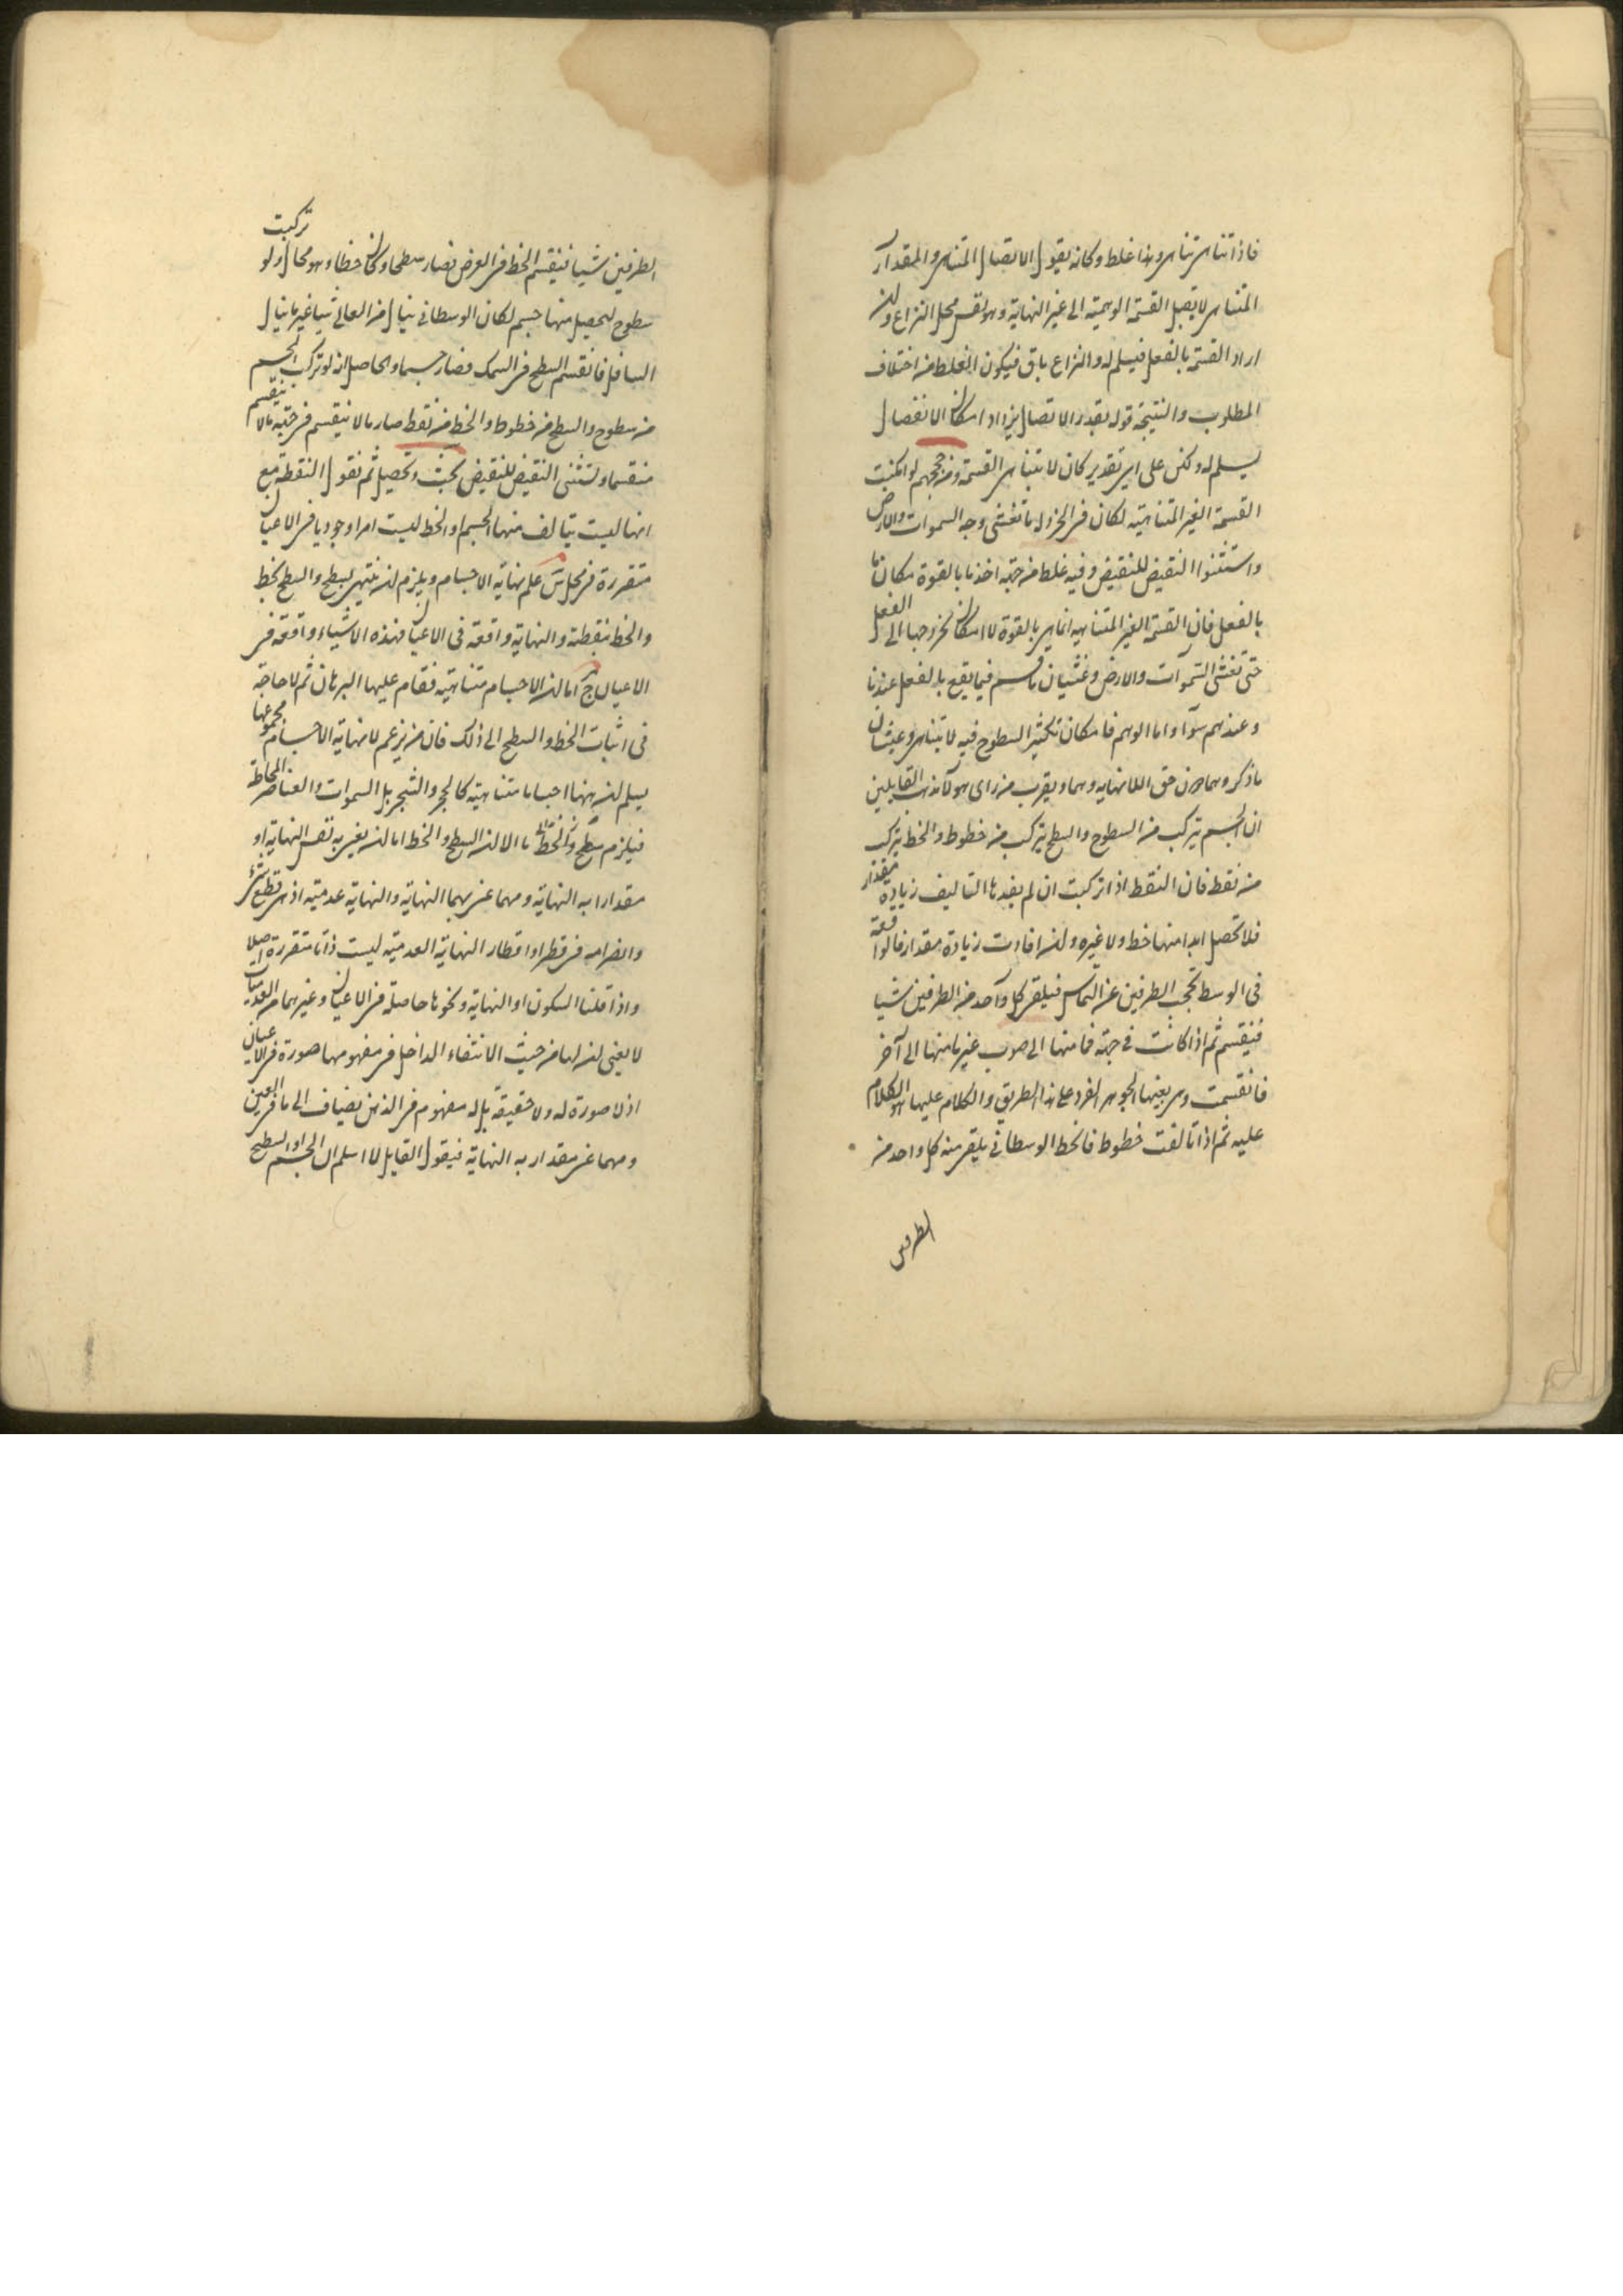 فاذا تناهى تناهى وهذا غلط وكانه يقول الاتصال المتناهى والمقدار
المتناهى لا يقبل القسمة الوهمية الى غير النهاية وهو نفس محل النزاع وان
اراد القسمة بالفعل فيسلم له والنزاع باق فيكون الغلط من اختلاف
المطلوب والنتيجة قوله بقدر الاتصال يزداد امكان الانفصال
يسلم له ولكن على اى تقدير كان لا يتناهى القسمة ومن حججهم لو امكنت
القسمة الغير المتناهية لكان فى الخردلة ما تغشى وجه السموات والارض
واستثنوا النقيض للنقيض وفيه غلط من جهة اخذ ما بالقوة مكان ما
بالفعل فان القسمة الغير المتناهية انما هى بالقوة لا امكان لخروجها الى الفعل
حتى تغشى السموات والارض وغشيان ما قسم فيما يقع بالفعل عندنا
وعندهم سوآء واما الوهم فامكان تكثير السطوح فيه لا يتناهى وغشيان
ما ذكروهما من حق اللانهايه وهما ويقرب من راى هولآء مذهب القايلين
ان الجسم يتركب من السطوح والسطح يتركب من خطوط والخط يتركب
من نقط فان النقط اذا تركبت ان لم يفدها التاليف زيادة مقدار
فلا تحصل ابدا منها خط ولا غيره وان افادت زيادة مقدار فالواقعة
فى الوسط تحجب الطرفين عن التماس فيلقى كل واحد من الطرفين شيا
فينقسم ثم اذا كانت فى جهة فما منها الى صوب غير ما منها الى آخر
فانقسمت وهى بعينها الجوهر الفرد على هذا الطريق والكلام عليها هو الكلام
عليه ثم اذا تالفت خطوط فالخط الوسطانى يلقى منه كل واحد من
الطرفين
الطرفين شيا فينقسم الخط فى العرض فصار سطحا وكان خطا وهو محال ولو تركبت
سطوح ليحصل منها جسم لكان الوسطانى ينال من العالى شيا غير ما ينال
السافل فانقسم السطح فى السمك فصار جسما والحاصل انه لو تركب الجسم
من سطوح والسطح من خطوط والخط من نقط صار ما لا ينقسم فى جهة ما لا ينقسم
منقسما ونستثنى النقيض للنقيض بحث وتحصيل ثم نقول النقطة مع
انها ليست يتالف منها الجسم او الخط ليست امرا وجوديا فى الاعيان
متقررة فى محل علم نهاية الاجسام ويلزم ان ينتهى بسطح والسطح بخط
والخط بنقطة والنهاية واقعة فى الاعيان فهذه الاشياء واقعة فى
الاعيان ج اما ان الاجسام متناهية فقام عليها البرهان ثم لا حاجة
فى اثبات الخط والسطح الى ذلك فان من يزعم لا نهاية الاجسام مجموعها
يسلم ان ههنا اجساما متناهية كالحجر والشجر بل السموات والعناصر المحاطة
فيلزم سطح وخط ما الا ان السطح والخط اما ان يعنى به نفس النهاية او
مقدارا به النهاية ومهما عنى بهما النهاية والنهاية عدمية اذ هى قطع شئ
وانصرامه فى قطر او اقطار النهاية العدمية ليست ذاتا متقررة اصلا
واذا قلنا السكون او النهاية ونحوها حاصلة فى الاعيان وغيرهما من العدميات
لا يعنى ان لها من حيث الانتفاء الداخل فى مفهومها صورة فى الاعيان
اذ لا صورة له ولا حقيقة بل له مفهوم فى الذهن يضاف الى ما فى العين
ومهما عنى مقدار به النهاية فيقول القايل لا اسلم ان الجسم او السطح